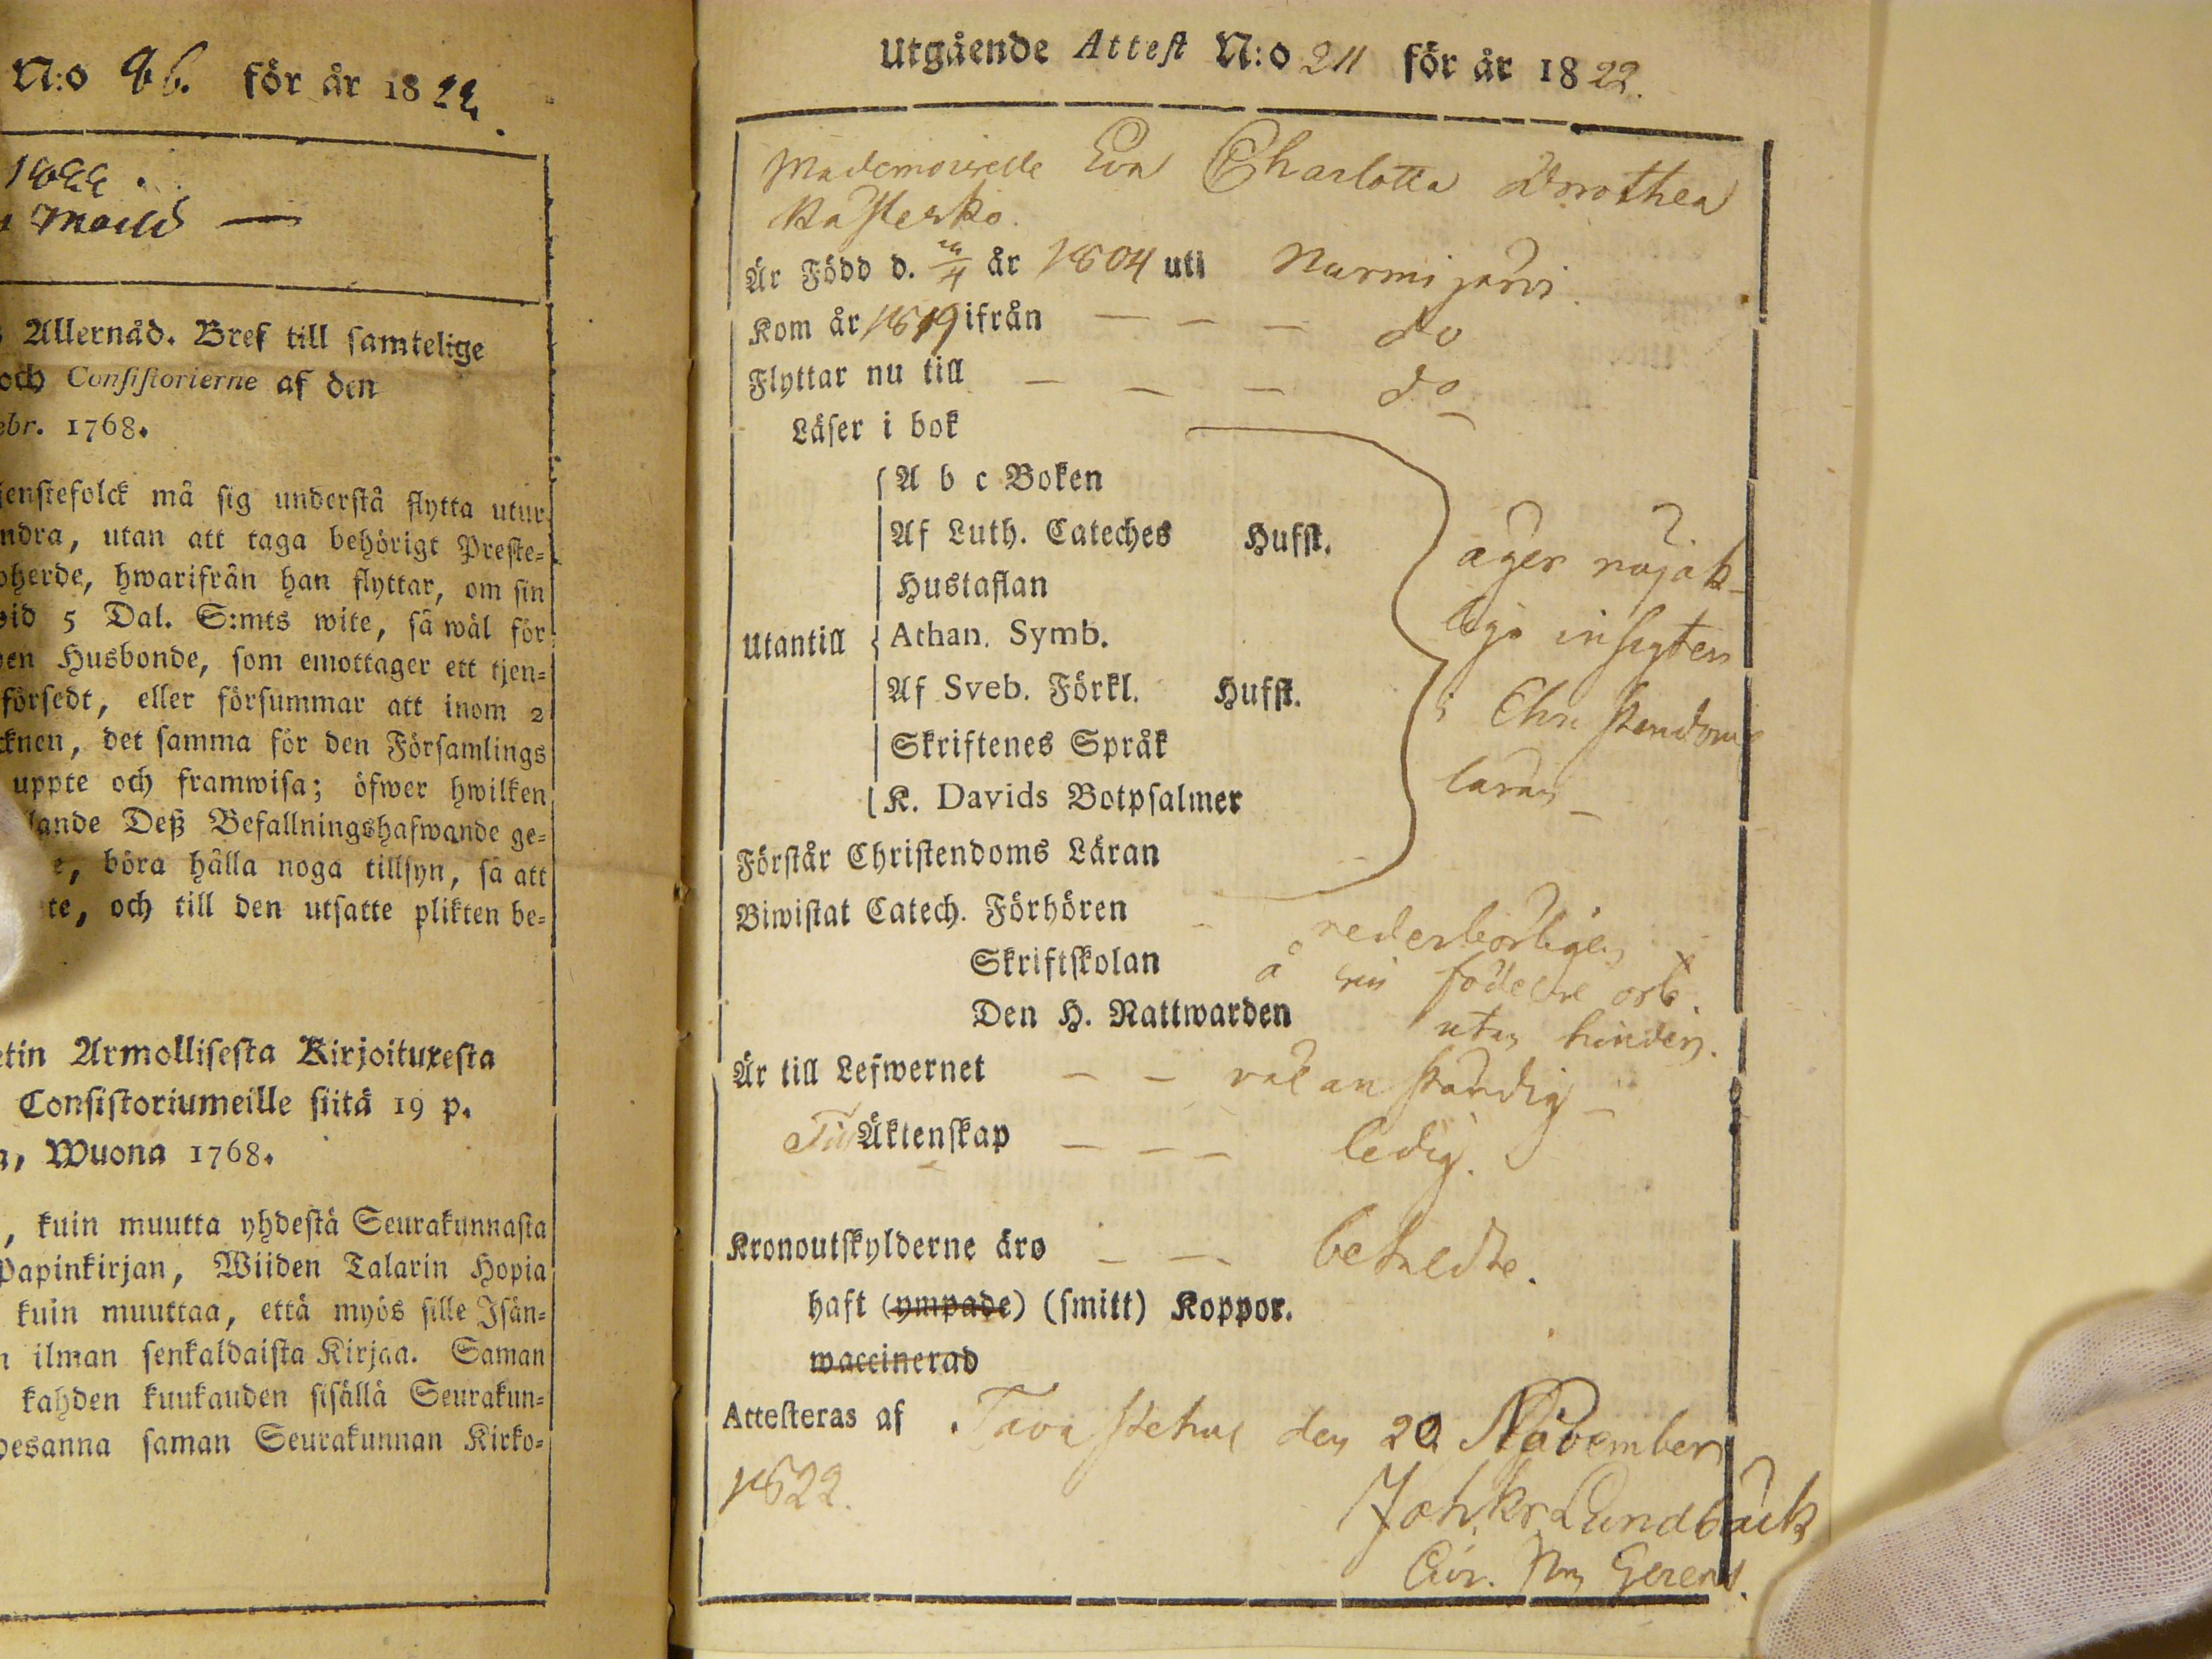 N:o 96. för år 1822.
1822.
Maild —
Allernåd. Bref till samtelige
och Consistorierne af den
ebr. 1768.
jenstefolck må sig understå flytta utur
ndra, utan att taga behörigt Preste=
oherde, hwarifrån han flyttar, om sin
wid 5 Dal. S:mts wite, så wäl för
den Husbonde, som emottager ett tjen=
försedt, eller försummar att inom 2
cknen, det samma för den Församlings
uppte och framwisa; öfwer hwilken
lande Deß Befallningshafwande ge=
e, böra hålla noga tillsyn, så att
te, och till den utsatte plikten be=
etin Armollisesta Kirjoituxesta
Consistoriumeille siitä 19 p.
a, Wuona 1768.
, kuin muutta yhdestä Seurakunnasta
Papinkirjan, Wiiden Talarin Hopia
kuin muuttaa, että myös sille Isän=
n ilman senkaldaista Kirjaa. Saman
kahden kuukauden sisällä Seurakun=
oesanna saman Seurakunnan Kirko=
Utgående Attest N:o 211 för år 1822.
Mademoiselle Eva Charlotta Dorothea
Kasterko.
Är Född d. /4 år 1804 uti Nurmijärvi.
Kom år 1819 ifrån — — — do
Flyttar nu till — — — do
Läser i bok
A b c Boken
Af Luth. Cateches Hufst.
Hustaflan
Utantill Athan. Symb.
Af Sveb. Förkl. Hufst.
Skriftenes Språk
K. Davids Botpsalmer
Förstår Christendoms Läran
äger nöjak-
liga insigter
i Christendoms
läran —
Biwistat Catech. Förhören vederbörligen
Skriftskolan å sin födelse ort.
Den H. Nattwarden utan hinder.
Är till Lefwernet — — väl anständig —
Till Äktenskap — — — ledig.
Kronoutskylderne äro — — betaldte.
haft (ympade) (smitt) Koppor.
waccinerad
Attesteras af Tavastehus den 20 November
1822.
Joh. Kr. Lundbäck
Cur. Gerens.